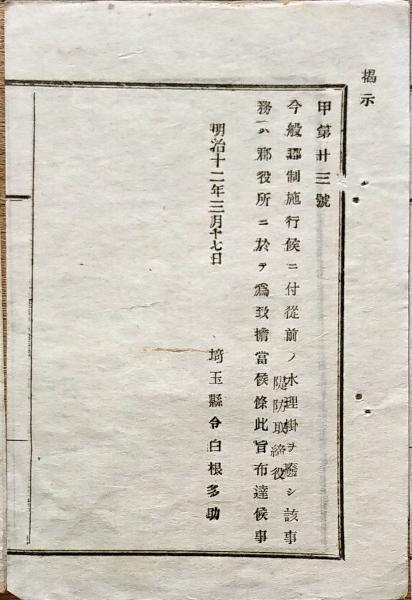 揭示
甲第廿三號
今般郡制施行候ニ付從前ノ水理掛ヲ廢シ該事
堤防取締役
務ハ郡役所ニ於テ爲致擔當候條此旨布達候事
明治十二年三月十七日
埼玉縣令白根多助